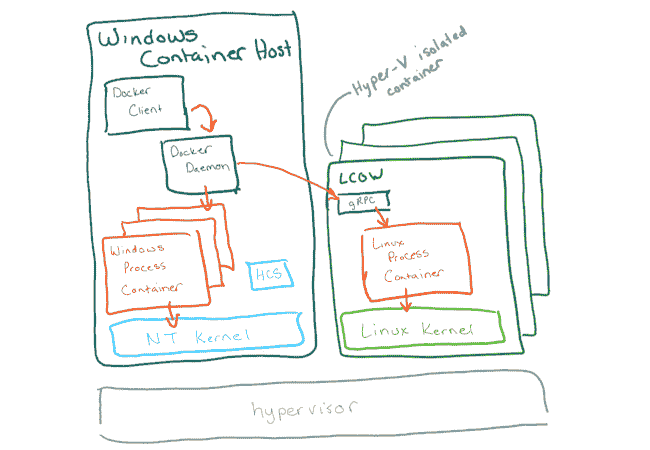 Windows
Container Host
Docker
Client
Docker
Daemon
Windows
Process
Container
HCS
NT Kernel
Hyper-V isolated
container
LCOW
gRPC
Linux
Process
Container
Linux Kernel
hypervisor